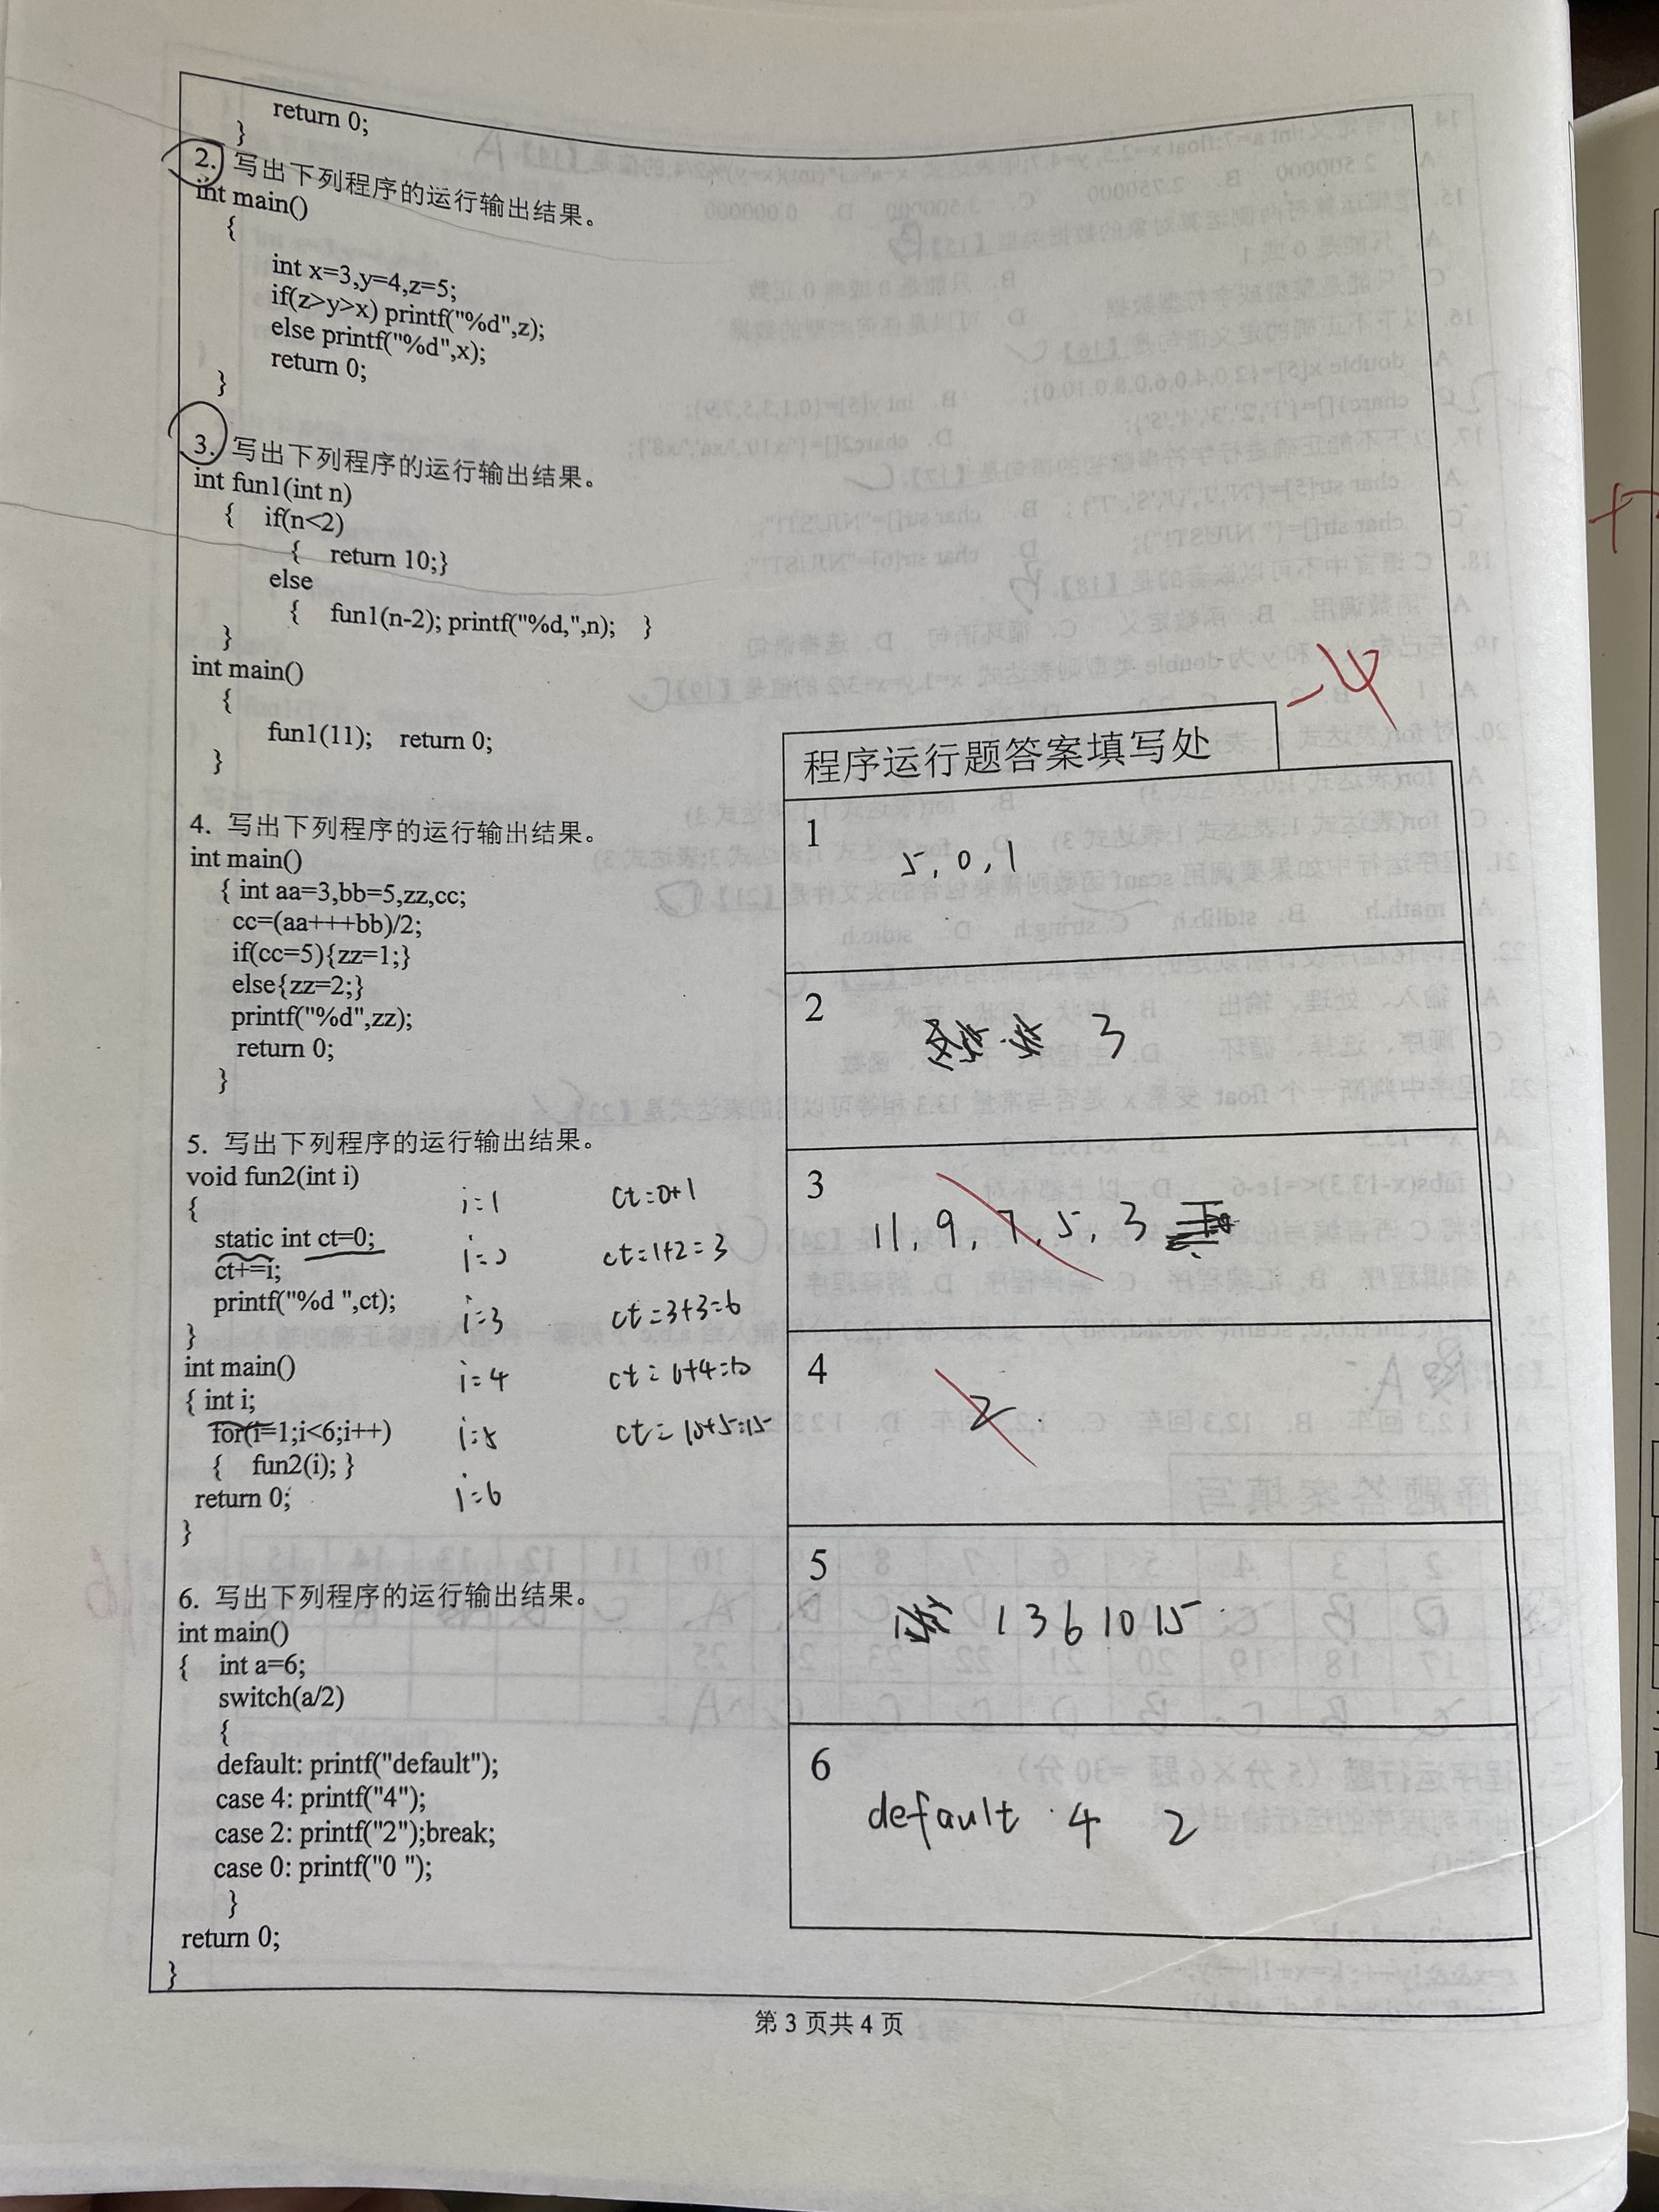 return 0;
}
2. 写出下列程序的运行输出结果。
int main()
{
int x=3,y=4,z=5;
if(z>y>x) printf("%d",z);
else printf("%d",x);
return 0;
}
3. 写出下列程序的运行输出结果。
int fun1(int n)
{ if(n<2)
{ return 10;}
else
{ fun1(n-2); printf("%d,",n); }
}
int main()
{
fun1(11); return 0;
}
4. 写出下列程序的运行输出结果。
int main()
{ int aa=3,bb=5,zz,cc;
cc=(aa+++bb)/2;
if(cc=5){zz=1;}
else{zz=2;}
printf("%d",zz);
return 0;
}
5. 写出下列程序的运行输出结果。
void fun2(int i)
{
static int ct=0;
ct+=i;
printf("%d ",ct);
}
int main()
{ int i;
for(i=1;i<6;i++)
{ fun2(i); }
return 0;
}
i=1 ct=0+1
i=2 ct=1+2=3
i=3 ct=3+3=6
i=4 ct=6+4=10
i=5 ct=10+5=15
i=6
6. 写出下列程序的运行输出结果。
int main()
{ int a=6;
switch(a/2)
{
default: printf("default");
case 4: printf("4");
case 2: printf("2");break;
case 0: printf("0 ");
}
return 0;
}
-4
程序运行题答案填写处
1
5,0,1
2
3
3
11,9,7,5,3
4
2.
5
1 3 6 10 15
6
default 4 2
第 3 页共 4 页